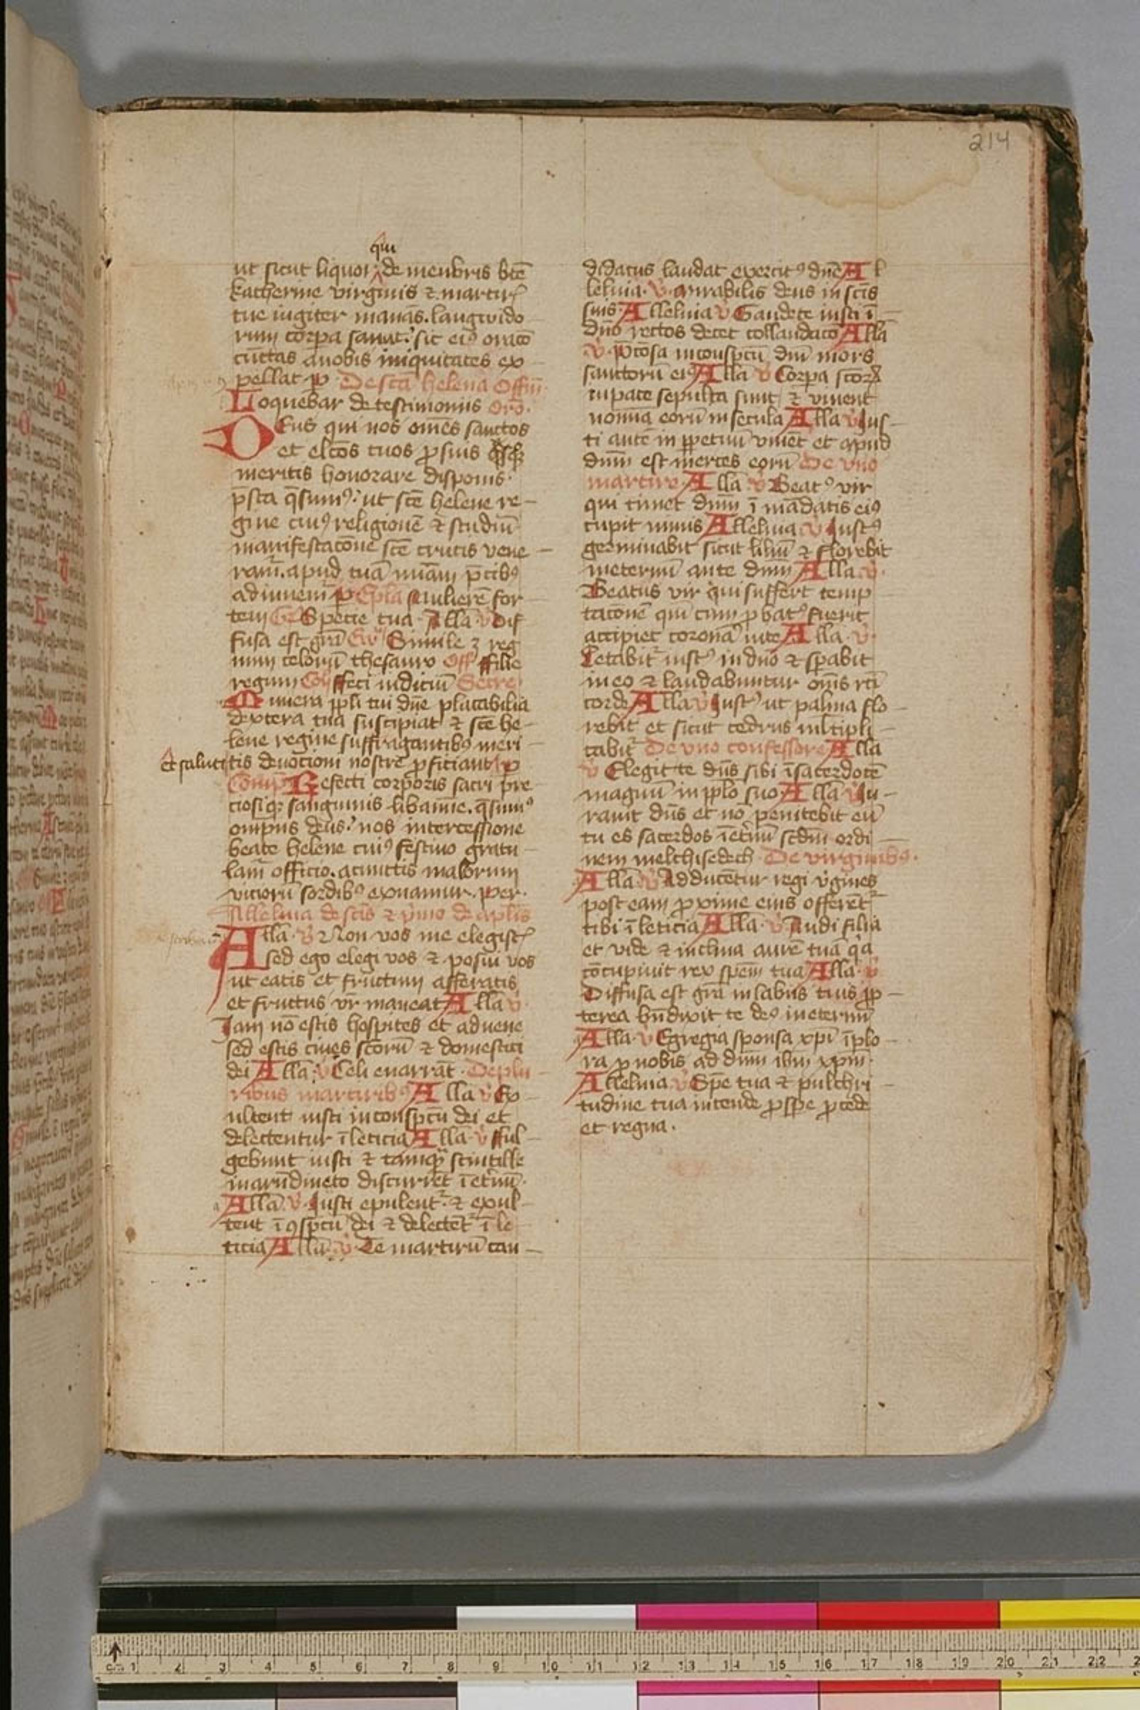 214
qui
ut sicut liquor de menbris bte
katherine virginis et martir
tue iugiter manas. languido
rum corpa sanat: sic eiꝰ oraco
cuctas anobis iniquitates ex
pellat p De sca helena Offm
Loquebar de testimoniis oro.
Deus qui nos omes sanctos
et elcos tuos p suis
meritis honorare disponis.
psta qsumꝰ: ut sce helene re
gine cuiꝰ religione et studiu
manifestacone sce crucis vene
ram. apud tua miam pcibꝰ
adiuuem p Epla Muliere for
tem Specie tua. Alla v Dif
fusa est gra Ev Simile ʒ reg
num celoru thesauro Off ffilie
regum Co ffeci iudiciu Secre
Munera ppli tui dne placabilia
dextera tua suscipiat et sce he
lene regine suffragantibꝰ meri
et salut tis deuocioni nostre pficiant p
Comp Refecti corporis sacri pre
ciosiqꝫ sanguinis libamie. qsumꝰ
omps deus: nos intercessione
beate helene cuiꝰ festiuo gratu
lam officio. acunctis malorum
viciorum sordibꝰ exuamur. per.
Alleluia de scis et primo de aplis
Alla v Non vos me elegist
sed ego elegi vos et posui vos
ut eatis et fructum afferatis
et fructus vr maneat Alla v
Jam no estis hospites et aduene
sed estis ciues scoru et domestici
dei Alla v Celi enarrat. De plu
ribus martiribꝰ Alla v Ex
ultent iusti in conspcu dei et
delectentur i leticia Alla v fful
gebunt iusti et tamqua scintille
in arudineto discurret i etnu.
Alla. v. Justi epulent. et exul
tent i ɔspcu dei et delectet i le
ticia Alla. v. Te martiru can
didatus laudat exercitꝰ dne Al
leluia. v. Mirabilis deus in scis
suis Alleluia v Gaudete iusti i
dno rectos decet collaudaco Alla
v. Pcosa in conspcu dni mors
sanctoru eiꝰ Alla v Corpa scorꝝ
in pace sepulta sunt et viuent
nomina eoru in secula Alla v Jus
ti aute in ppetuu viuet et apud
dnm est merces eoru De vno
martire. Alla v Beatꝰ vir
qui timet dnm i madatis eiꝰ
cupit nimis Alleluia v Justꝰ
germinabit sicut liliu et florebit
in eternu ante dnm Alla v.
Beatus vir qui suffert temp
tacone qm cum p batꝰ fuerit
accipiet corona vite Alla. v.
Letabit iustꝰ in dno et spabit
in eo et laudabuntur omes rci
corde Alla v Justꝰ ut palma flo
rebit et sicut cedrus multipli
cabit De vno confessore Alla
v Elegit te dns sibi i sacerdote
magnu in pplo suo Alla v Ju
rauit dns et no penitebit eu
tu es sacerdos i etnu scdm ordi
nem melchisedech. De virginibꝰ.
Alla v Adducetur regi vgines
post eam pxime eius offeret
tibi i leticia Alla. v. Audi filia
et vide et inclina aure tua qa
cocupiuit rex spem tua Alla. v
Diffusa est gra in labiis tuis pp
terea bndixit te deꝰ in eternu
Alla. v Egregia sponsa xpi iplo
ra p nobis ad dnm ihm xpm.
Alleluia v Spe tua et pulchri
tudine tua intende pspe pcede
et regna.